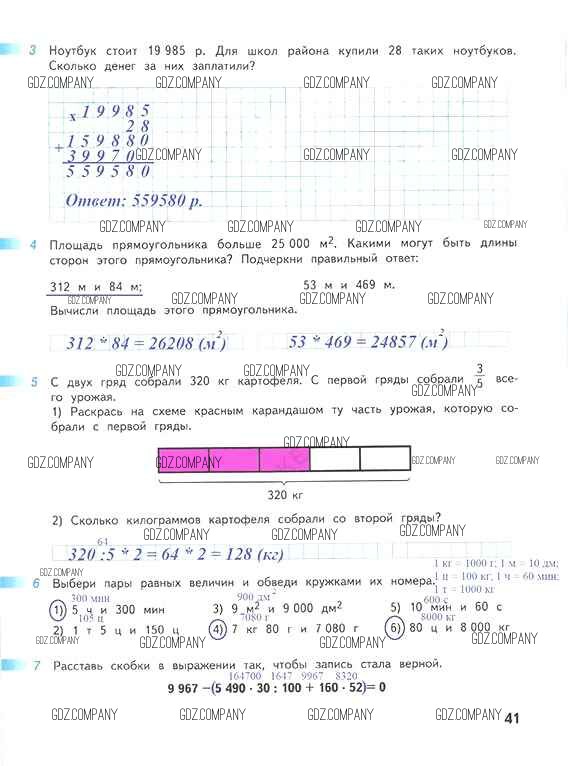 3 Ноутбук стоит 19 985 р. Для школ района купили 28 таких ноутбуков.
Сколько денег за них заплатили?
GDZ.COMPANY GDZ.COMPANY GDZ.COMPANY GDZ.COMPANY
х 1 9 9 8 5
2 8
+ 1 5 9 8 8 0
3 9 9 7 0
GDZ.COMPANY GDZ.COMPANY GDZ.COMPANY
5 5 9 5 8 0
Ответ: 559580 р.
GDZ.COMPANY GDZ.COMPANY GDZ.COMPANY GDZ.COMPANY
4 Площадь прямоугольника больше 25 000 м². Какими могут быть длины
сторон этого прямоугольника? Подчеркни правильный ответ:
312 м и 84 м; 53 м и 469 м.
GDZ.COMPANY GDZ.COMPANY GDZ.COMPANY GDZ.COMPANY
Вычисли площадь этого прямоугольника.
312 * 84 = 26208 (м²) 53 * 469 = 24857 (м²)
GDZ.COMPANY GDZ.COMPANY GDZ.COMPANY
5 С двух гряд собрали 320 кг картофеля. С первой гряды собрали 3/5 все-
го урожая.
1) Раскрась на схеме красным карандашом ту часть урожая, которую со-
брали с первой гряды.
GDZ.COMPANY
GDZ.COMPANY GDZ.COMPANY GDZ.COMPANY GDZ.COMPANY GDZ.COMPANY
320 кг
2) Сколько килограммов картофеля собрали со второй гряды?
GDZ.COMPANY GDZ.COMPANY GDZ.COMPANY
64
320 :5 * 2 = 64 * 2 = 128 (кг)
1 кг = 1000 г; 1 м = 10 дм;
GDZ.COMPANY
1 ц = 100 кг; 1 ч = 60 мин;
6 Выбери пары равных величин и обведи кружками их номера.
1 т = 1000 кг
300 мин 900 дм² 600 с
1) 5 ч и 300 мин 3) 9 м² и 9 000 дм² 5) 10 мин и 60 с
105 ц 7080 г 8000 кг
2) 1 т 5 ц и 150 ц 4) 7 кг 80 г и 7 080 г 6) 80 ц и 8 000 кг
GDZ.COMPANY GDZ.COMPANY GDZ.COMPANY GDZ.COMPANY
7 Расставь скобки в выражении так, чтобы запись стала верной.
164700 1647 9967 8320
9 967 –(5 490 · 30 : 100 + 160 · 52)= 0
GDZ.COMPANY GDZ.COMPANY GDZ.COMPANY GDZ.COMPANY
41